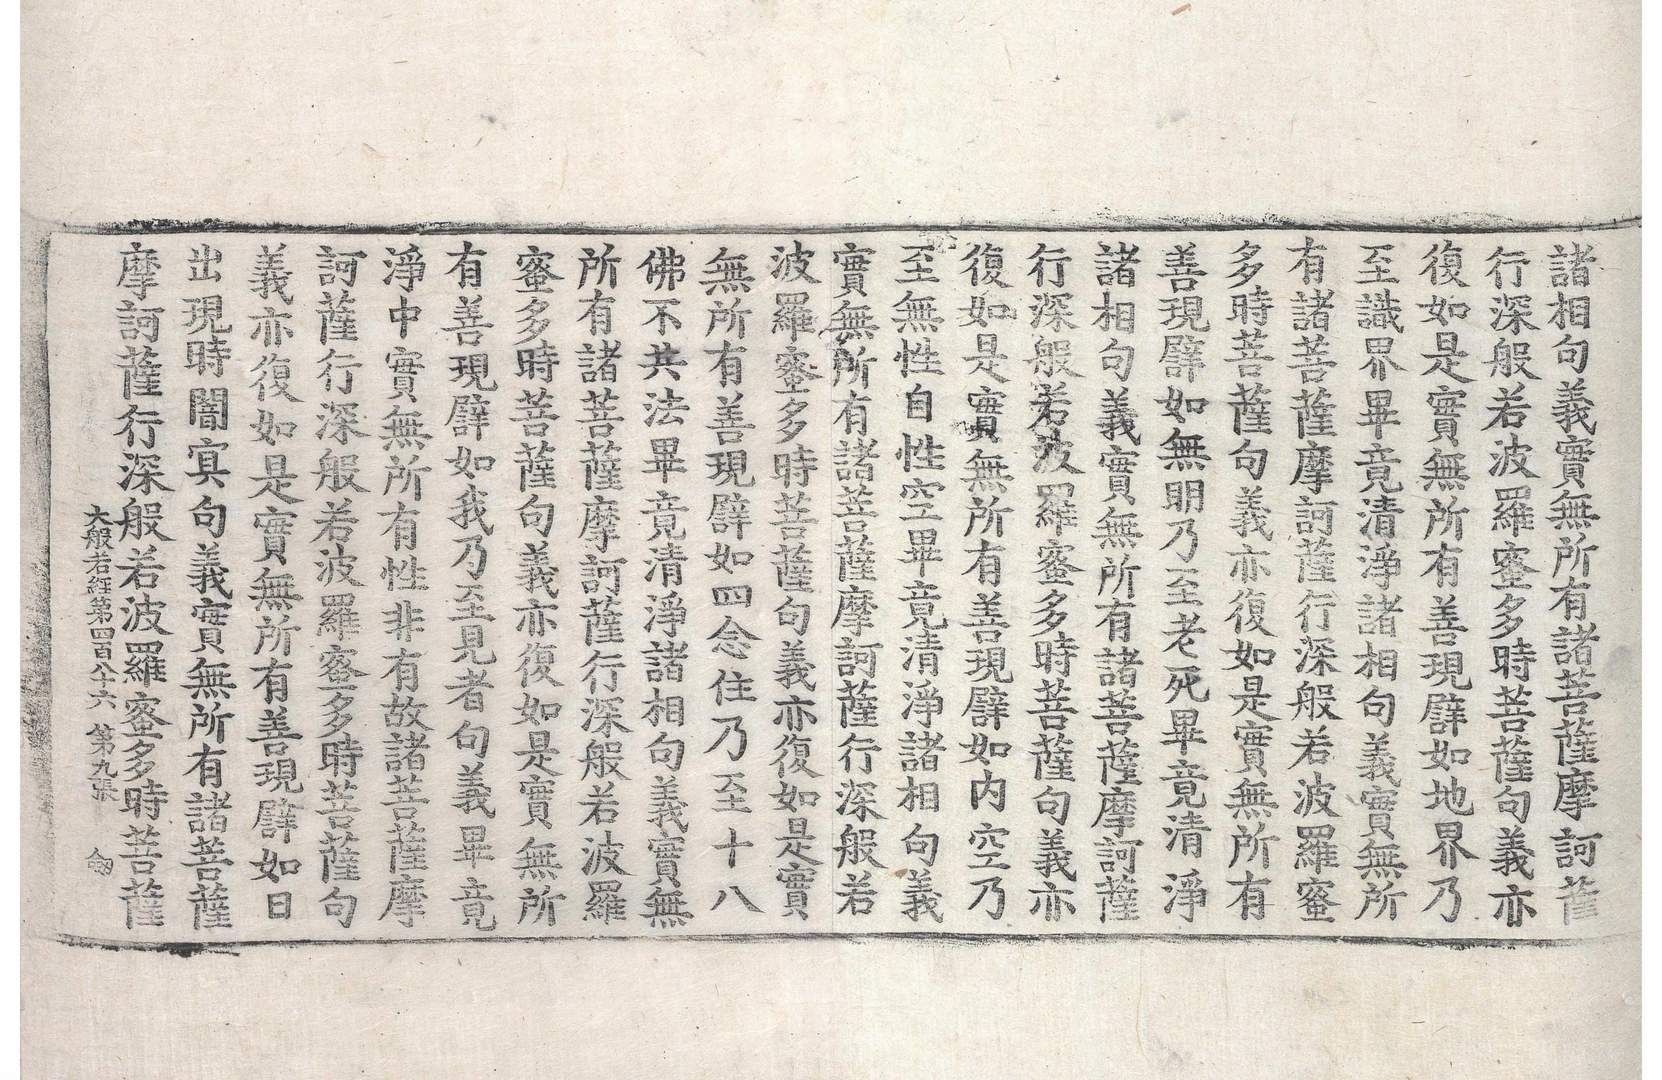 諸相句義實無所有諸菩薩摩訶薩
行深般若波羅蜜多時菩薩句義亦
復如是實無所有善現譬如地界乃
至識界畢竟清淨諸相句義實無所
有諸菩薩摩訶薩行深般若波羅蜜
多時菩薩句義亦復如是實無所有
善現譬如無明乃至老死畢竟清淨
諸相句義實無所有諸菩薩摩訶薩
行深般若波羅蜜多時菩薩句義亦
復如是實無所有善現譬如內空乃
至無性自性空畢竟清淨諸相句義
實無所有諸菩薩摩訶薩行深般若
波羅蜜多時菩薩句義亦復如是實
無所有善現譬如四念住乃至十八
佛不共法畢竟清淨諸相句義實無
所有諸菩薩摩訶薩行深般若波羅
蜜多時菩薩句義亦復如是實無所
有善現譬如我乃至見者句義畢竟
淨中實無所有性非有故諸菩薩摩
訶薩行深般若波羅蜜多時菩薩句
義亦復如是實無所有善現譬如日
出現時闇冥句義實無所有諸菩薩
摩訶薩行深般若波羅蜜多時菩薩
大般若經第四百八十六 第九張